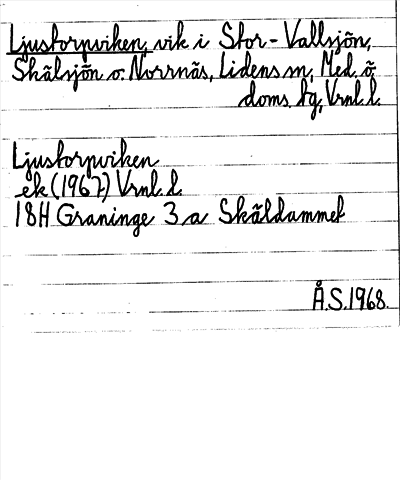 Ljustorpviken, vik i Stor-Vallsjön,
Skälsjön o. Norrnäs, Lidens sn, Med. ö.
doms. hg, Vrnl. l.
Ljustorpviken
ek (1967) Vrnl. l.
18H Graninge 3 a Skäldammet
Å.S. 1968.